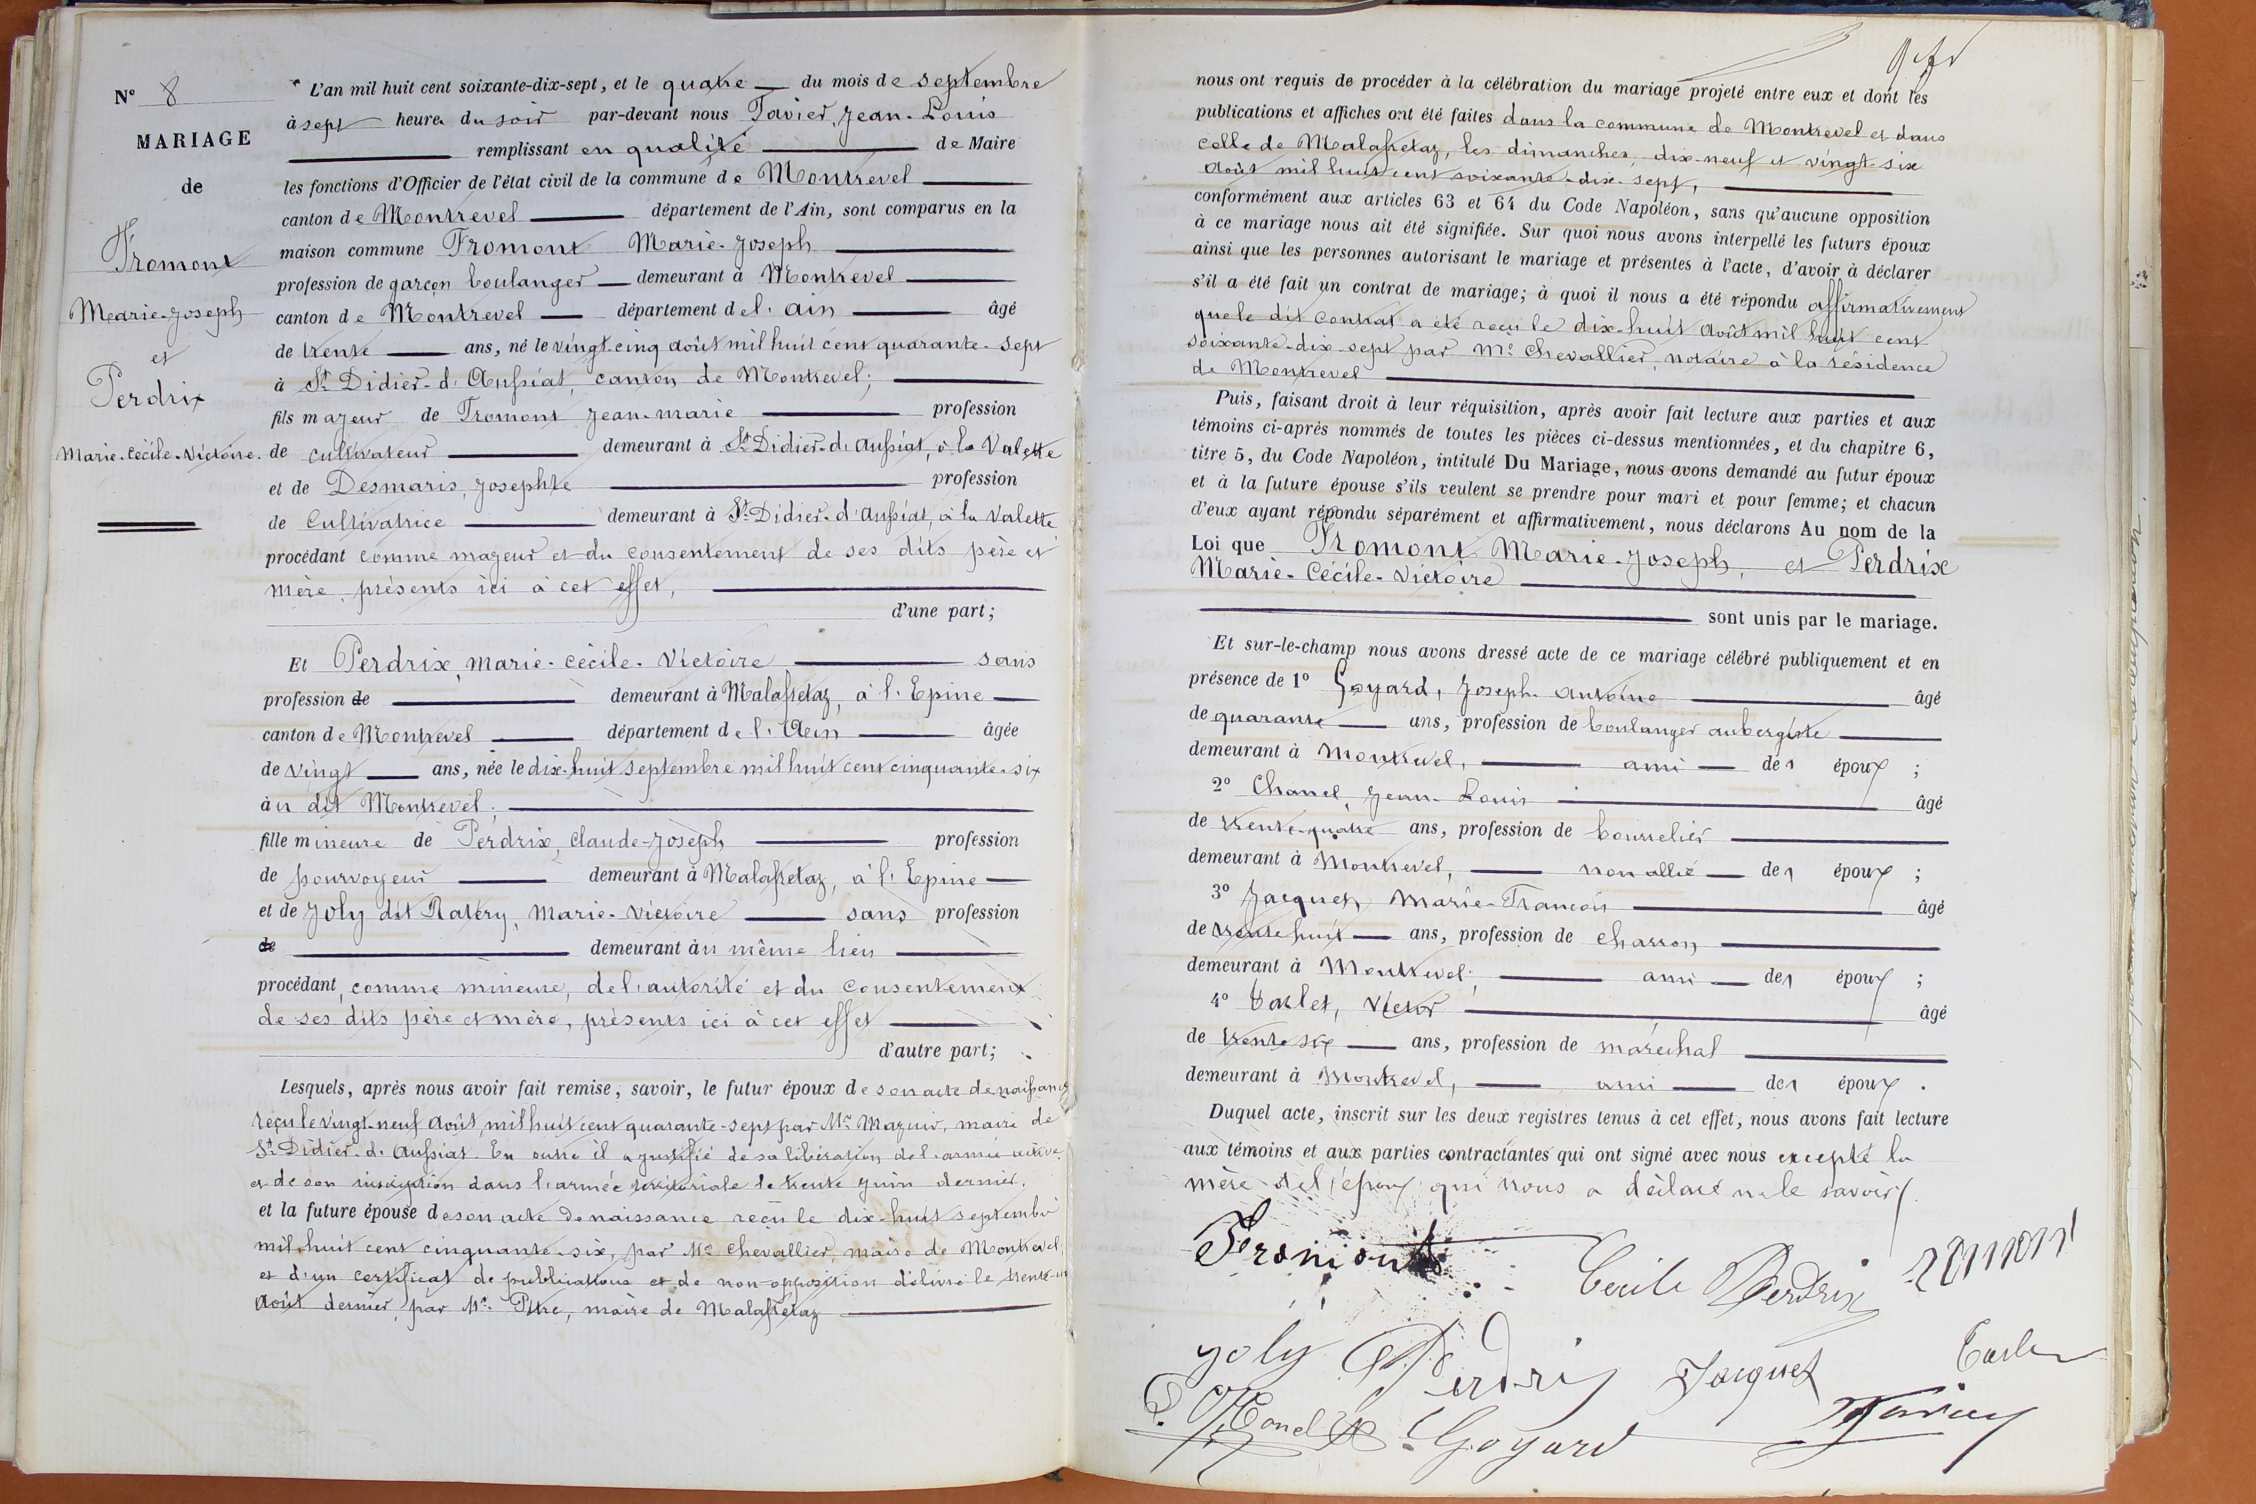 N° 8
MARIAGE
de
Fromont
Marie-Joseph
et
Perdrix
Marie-Cécile-Victoire.
L'an mil huit cent soixante-dix-sept, et le quatre du mois de septembre
à sept heures du soir par-devant nous Tavier, Jean-Louis
remplissant en qualité de Maire
les fonctions d'Officier de l'état civil de la commune de Montrevel
canton de Montrevel département de l'Ain, sont comparus en la
maison commune Fromont Marie-Joseph
profession de garçon boulanger demeurant à Montrevel
canton de Montrevel département de l'ain âgé
de trente ans, né le vingt-cinq août mil huit cent quarante-sept
à St Didier-d'Aussiat, canton de Montrevel;
fils majeur de Fromont Jean-marie profession
de cultivateur demeurant à St Didier-d'aussiat, à la Valette
et de Desmaris, Josephte profession
de Cultivatrice demeurant à St Didier-d'aussiat, à la Valette
procédant comme majeur et du consentement de ses dits père et
mère, présents ici à cet effet,
d'une part;
Et Perdrix, Marie-Cécile-Victoire sans
profession de demeurant à Malafretaz, à l'Epine
canton de Montrevel département de l'Ain âgée
de vingt ans, née le dix-huit septembre mil huit cent cinquante-six
à u dit Montrevel;
fille mineure de Perdrix, Claude-Joseph profession
de pourvoyeur demeurant à Malafretaz, à l'Epine
et de Joly dit Ratéry, Marie-Victoire sans profession
de demeurant à u même lieu
procédant, comme mineure, de l'autorité et du Consentement
de ses dits père et mère, présents ici à cet effet
d'autre part;
Lesquels, après nous avoir fait remise, savoir, le futur époux de son acte de naissance
reçu le vingt-neuf Août, mil huit cent quarante-sept par Mr Mazuir, maire de
St Didier-d'Aussiat. En outre il a justifié de sa libération de l'armée active
et de son inscription dans l'armée territoriale le trente juin dernier.
et la future épouse de son acte de naissance reçu le dix-huit septembre
mil huit cent cinquante-six, par Mr Chevallier, maire de Montrevel,
et d'un certificat de publications et de non-opposition délivré le trente-un
Août dernier, par Mr maire de Malafretaz
nous ont requis de procéder à la célébration du mariage projeté entre eux et dont les
publications et affiches ont été faites dans la commune de Montrevel et dans
celle de Malafretaz, les dimanches, dix-neuf et vingt-six
Août mil huit cent soixante-dix-sept,
conformément aux articles 63 et 64 du Code Napoléon, sans qu'aucune opposition
à ce mariage nous ait été signifiée. Sur quoi nous avons interpellé les futurs époux
ainsi que les personnes autorisant le mariage et présentes à l'acte, d'avoir à déclarer
s'il a été fait un contrat de mariage; à quoi il nous a été répondu affirmativement
que le dit Contrat a été reçu le dix-huit Août mil huit cent
soixante-dix-sept par Me Chevallier, notaire à la résidence
de Montrevel
Puis, faisant droit à leur réquisition, après avoir fait lecture aux parties et aux
témoins ci-après nommés de toutes les pièces ci-dessus mentionnées, et du chapitre 6,
titre 5, du Code Napoléon, intitulé Du Mariage, nous avons demandé au futur époux
et à la future épouse s'ils veulent se prendre pour mari et pour femme; et chacun
d'eux ayant répondu séparément et affirmativement, nous déclarons Au nom de la
Loi que Fromont Marie-Joseph, et Perdrix
Marie-Cécile-Victoire
sont unis par le mariage.
Et sur-le-champ nous avons dressé acte de ce mariage célébré publiquement et en
présence de 1° Goyard, Joseph-Antoine âgé
de quarante ans, profession de boulanger aubergiste
demeurant à Montrevel, ami des époux ;
2° Chanel, Jean-Louis âgé
de trente-quatre ans, profession de bourrelier
demeurant à Montrevel, non allié des époux ;
3° Jacquet, Marie-François âgé
de trente huit ans, profession de charron
demeurant à Montrevel; ami des époux ;
4° Carlet, Victor âgé
de trente six ans, profession de maréchal
demeurant à Montrevel, ami des époux .
Duquel acte, inscrit sur les deux registres tenus à cet effet, nous avons fait lecture
aux témoins et aux parties contractantes qui ont signé avec nous excepté la
mère de l'époux qui nous a déclaré ne le savoir
Fromont
Cecile Perdrix
Joly
Perdrix
Jacquet
Goyard